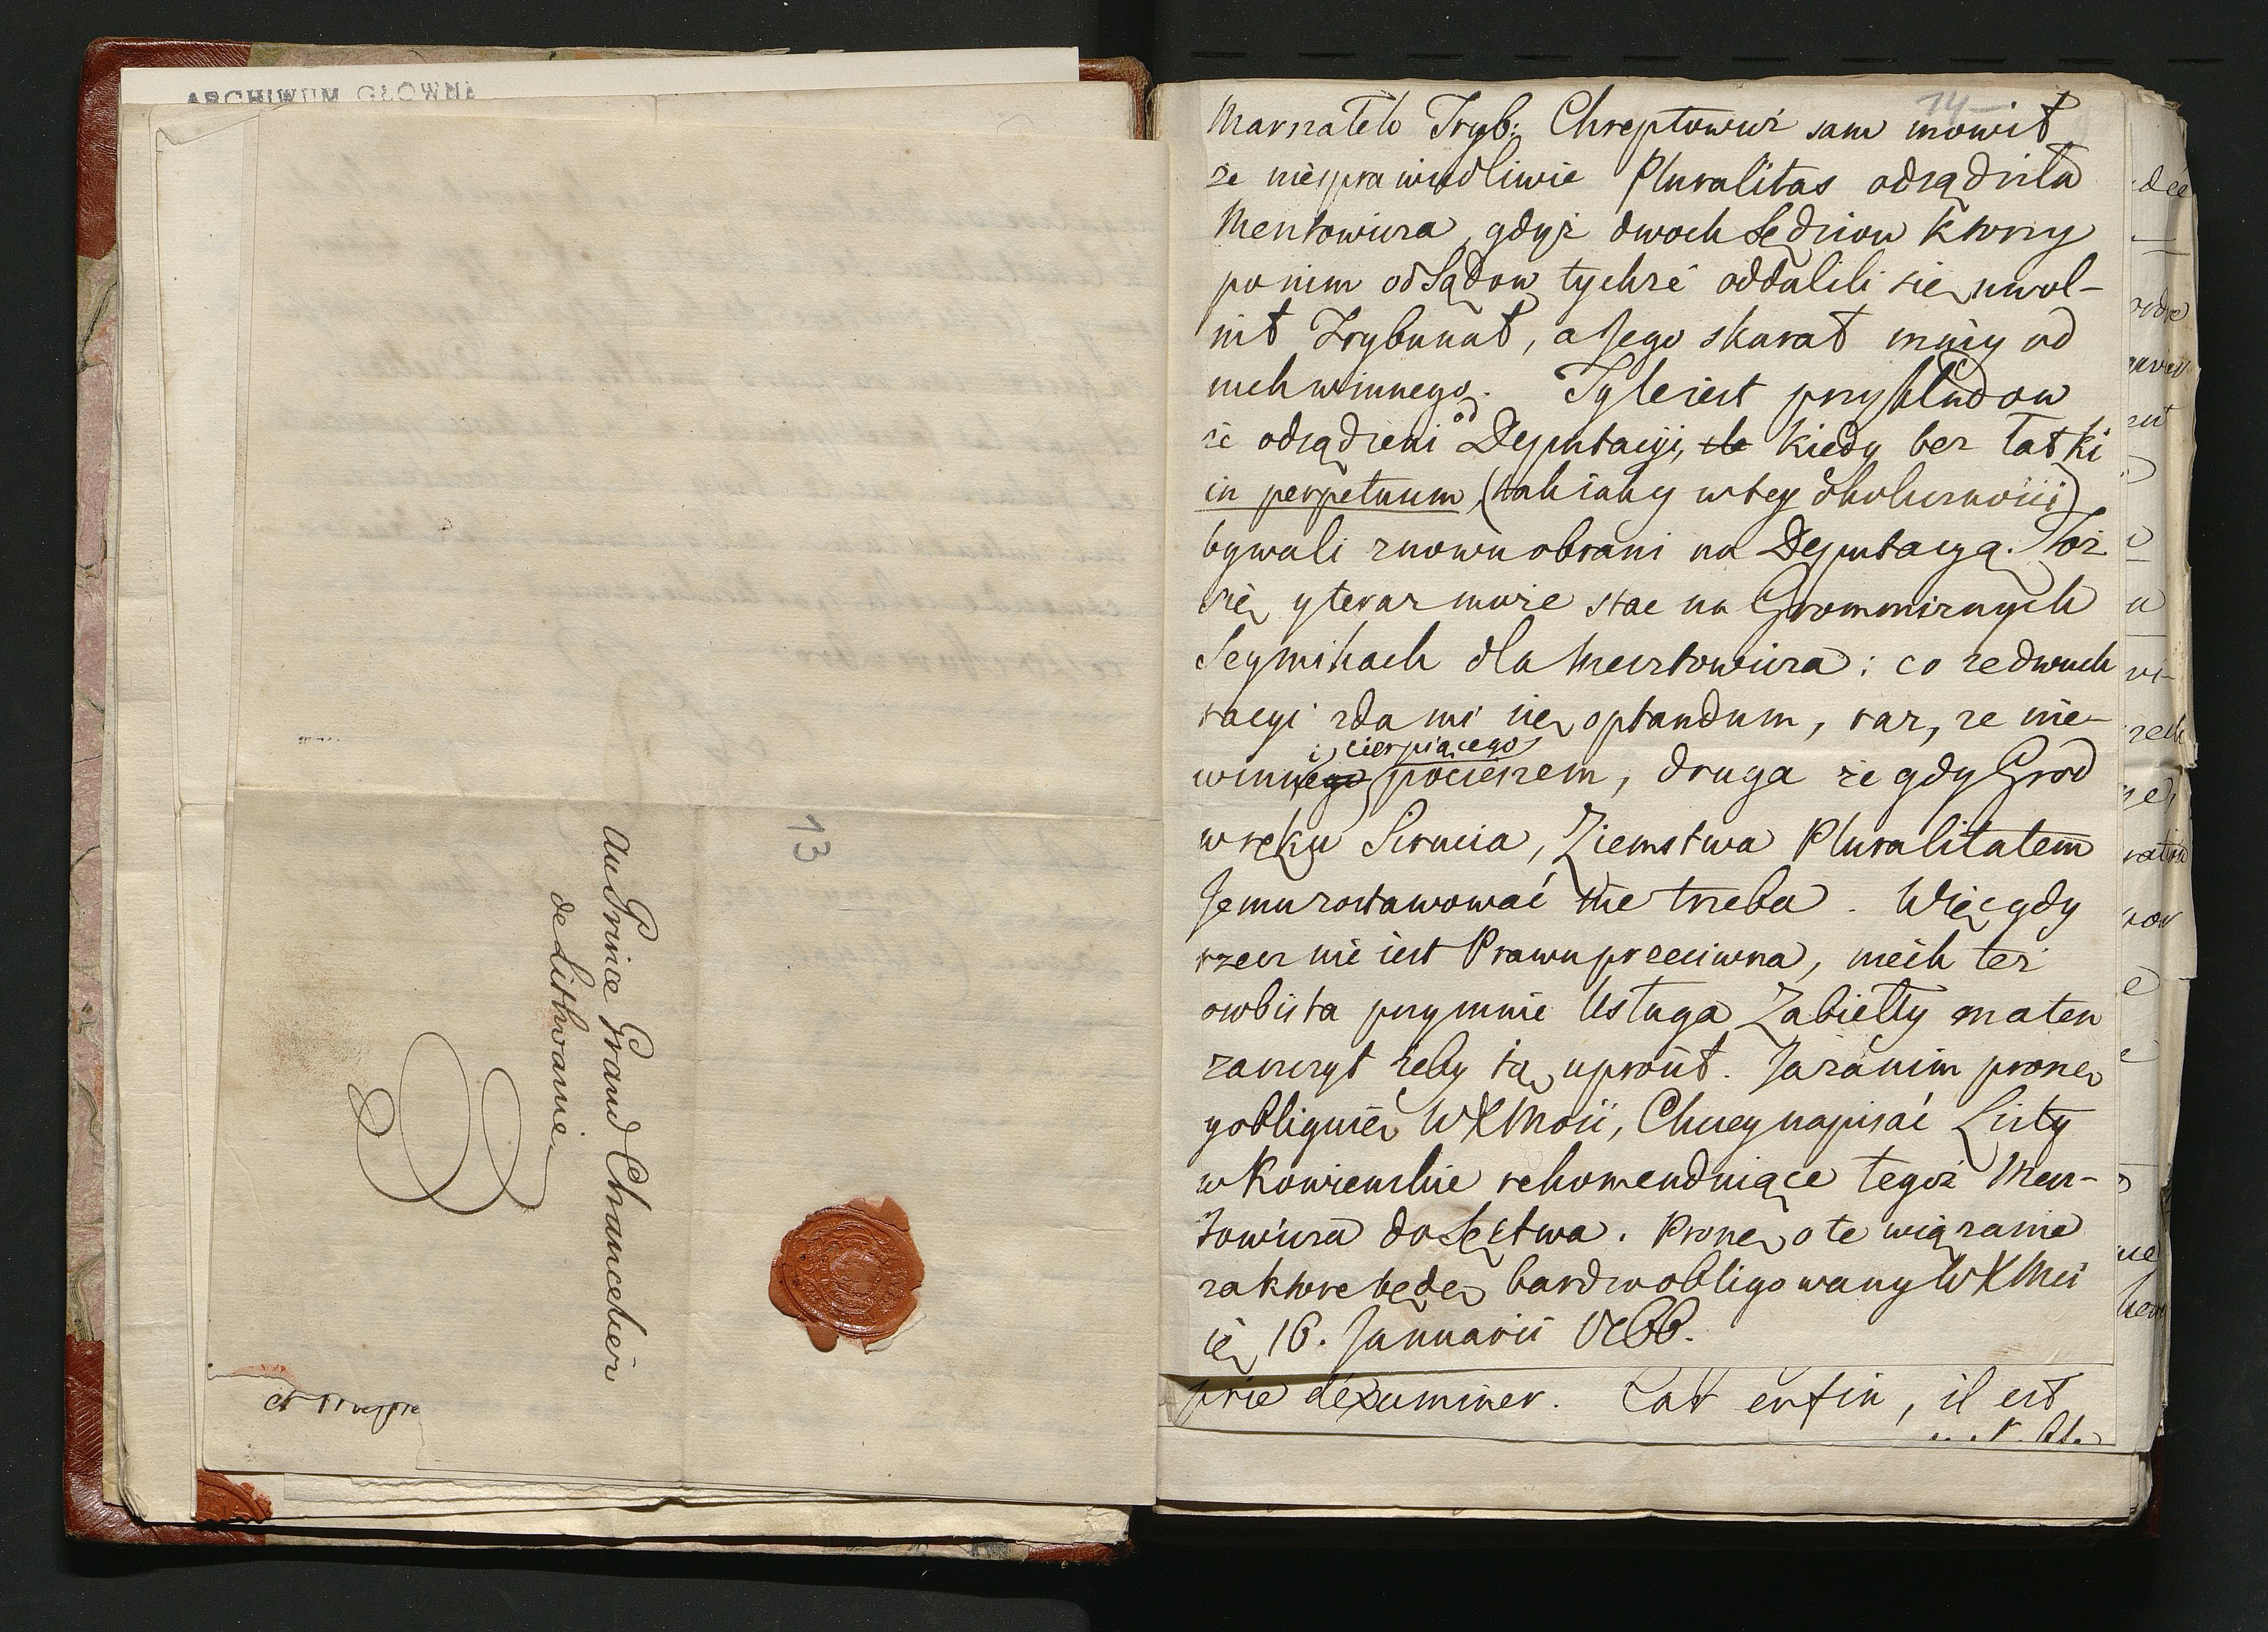 ARCHIWUM GŁÓWNE
13
au Prince Grand Chancelier
de Lithvanie
14
Marszałek Tryb: Chreptowicz sam mowił
że niesprawiedliwie Pluralitas odsądziła
Mentowicza, gdyż dwoch Sędziow ktorzy
po nim od Sądow tychże oddalili się uwol-
nił Trybunał, a Jego skarał mniey od
nich winnego. Tyle iest przykładow
że odsądzeni od Deputacyi, kiedy bez łatki
in perpetuum (tak iak y w tey okolicznosci)
bywali znowu obrani na Deputacyą. Toż
się y teraz może stac na Grommicznych
Seymikach dla Mentowicza: co ze dwuch
racyi zda mi się optandum, raz, że nie-
i cierpiącego
winnego pocieszem, druga że gdy Grod
w ręku Sirucia, Ziemstwa Pluralitatem
Jemu zostawować nie trzeba. Więc gdy
rzecz nie iest Prawu przeciwna, niech też
osobista przymnie Usługa Zabiełły ma ten
zaszczyt żeby ią uprosił. Ja za nim proszę
y obliguię WXMości, Chciey napisać Listy
w Kowienskie rekomenduiące tegoż Men-
towicza do Sęstwa. Proszę o te wiązanie
za ktore będę bardzo obligowany WXMci
ię 16. Januarii 1766.
prie d'examiner. Car enfin, il est